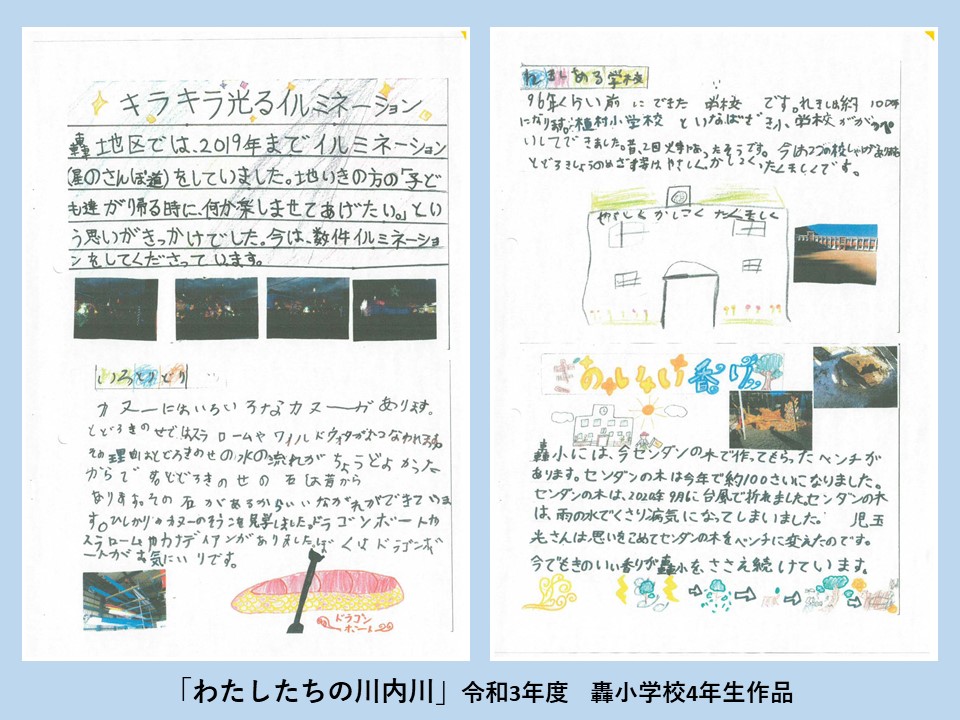 キラキラ光るイルミネーション
轟地区では、2019年までイルミネーション
(星のさんぽ道)をしていました。地いきの方の「子ど
も達が帰る時に、何か楽しませてあげたい。」とい
う思いがきっかけでした。今は、数件イルミネーショ
ンをしてくださっています。
いろとりどり
カヌーにはいろいろなカヌーがあります。
とどろきのせではスラロームやワイルドウォータがおこなわれます。
その理由はとどろきのせの水の流れがちょうどよかった
からです。とどろきのせの石は昔から
あります。その石があるからいいながれができていま
す。ひしかりカヌーのそうこを見学しました。ドラゴンボートや
スラロームやカナディアンがありました。ぼくはドラゴンボ
ートがお気にいりです。
ドラゴン
ボート
れきしある学校
96年くらい前にできた学校です。れきしは約100年
になります。植村小学校といなばざき小学校ががっぺ
いしてできました。昔、2回火事があったそうです。今は2つの校しゃが
とどろきしょうのめざす子はやさしく、かしこく、たくましくです。
やさしく かしこく たくましく
おいしい香り
轟小には、今センダンの木で作ってもらったベンチが
あります。センダンの木は今年で約100さいになりました。
センダンの木は、2020年9月に台風で折れました。センダンの木
は、雨の水でくさり病気になってしまいました。 児玉
さんは思いをこめてセンダンの木をベンチに変えたのです。
今でも木のいい香りが轟小を、ささえ続けています。
「わたしたちの川内川」令和3年度 轟小学校4年生作品